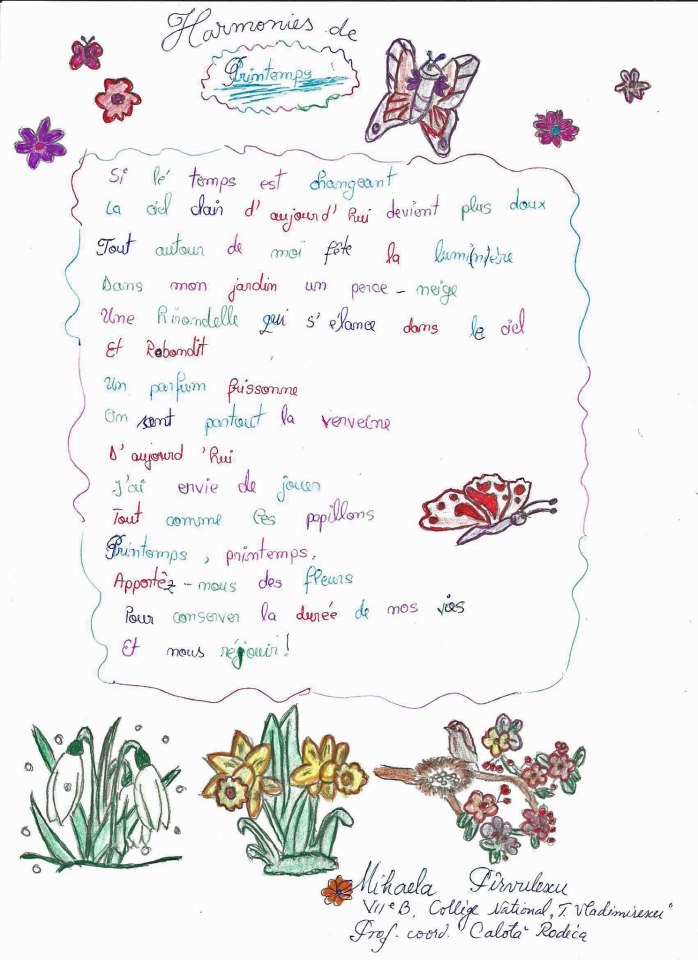 Harmonies de
Printemps
Si lé temps est changeant
La ciel clair d'aujourd'hui devient plus doux
Tout autour de moi fête la lumi(n)ière
Dans mon jardin un perce-neige
Une hirondelle qui s'élance dans le ciel
Et Rebondit
Un parfum frissonne
On sent partout la verveine
D'aujourd'hui
J'ai envie de jouer
Tout comme les papillons
Printemps, printemps,
Apportez-nous des fleurs
Pour conserver la durée de nos vies
Et nous réjouir!
Mihaela Pîrvulescu
VIIe B, Collège National „T. Vladimirescu"
Prof. coord. Calotă Rodica